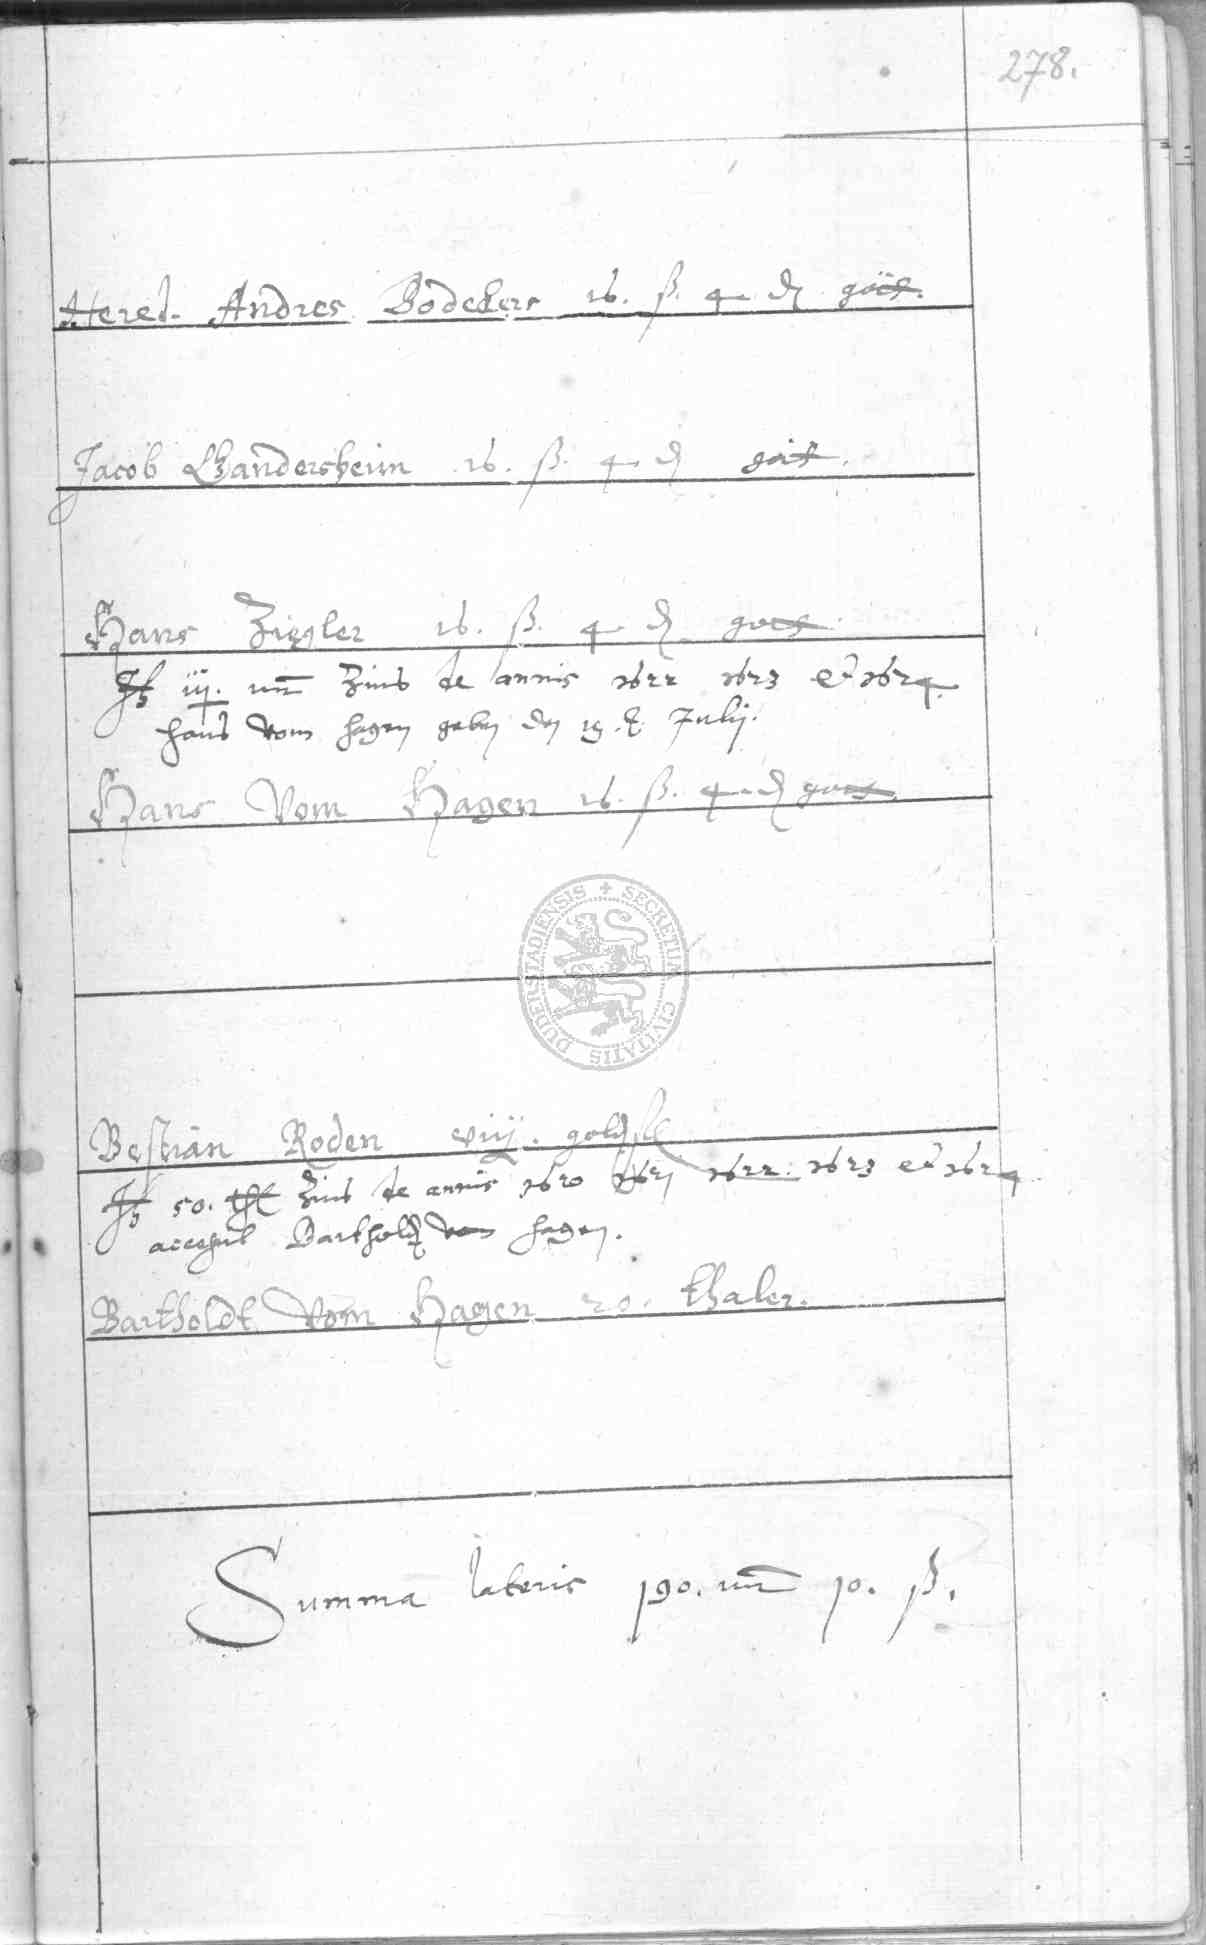 278.
Hered. Andres Bodekers 16. ß. 4 ₰ goët.
Jacob Gandersheim 16. ß. 4 ₰ goit.
Hans Ziegler 16. ß. 4 ₰ goes.
iij. Zins de annis 1622 1623 et 1624.
Hans vom Hagen geben den 19. t. Julij.
Hans Vom Hagen 16. ß. 4 ₰
SECRETUM CIVITATIS DUDERSTADIENSIS
Bestian Roden viij. gold fl
50. thl Zins de annis 1620 1621 1622. 1623 et 1624
accepit Bartholdt von Hagen.
Bartholdt Vom Hagen 20. thaler.
Summa lateris 190. mr 10. ß.